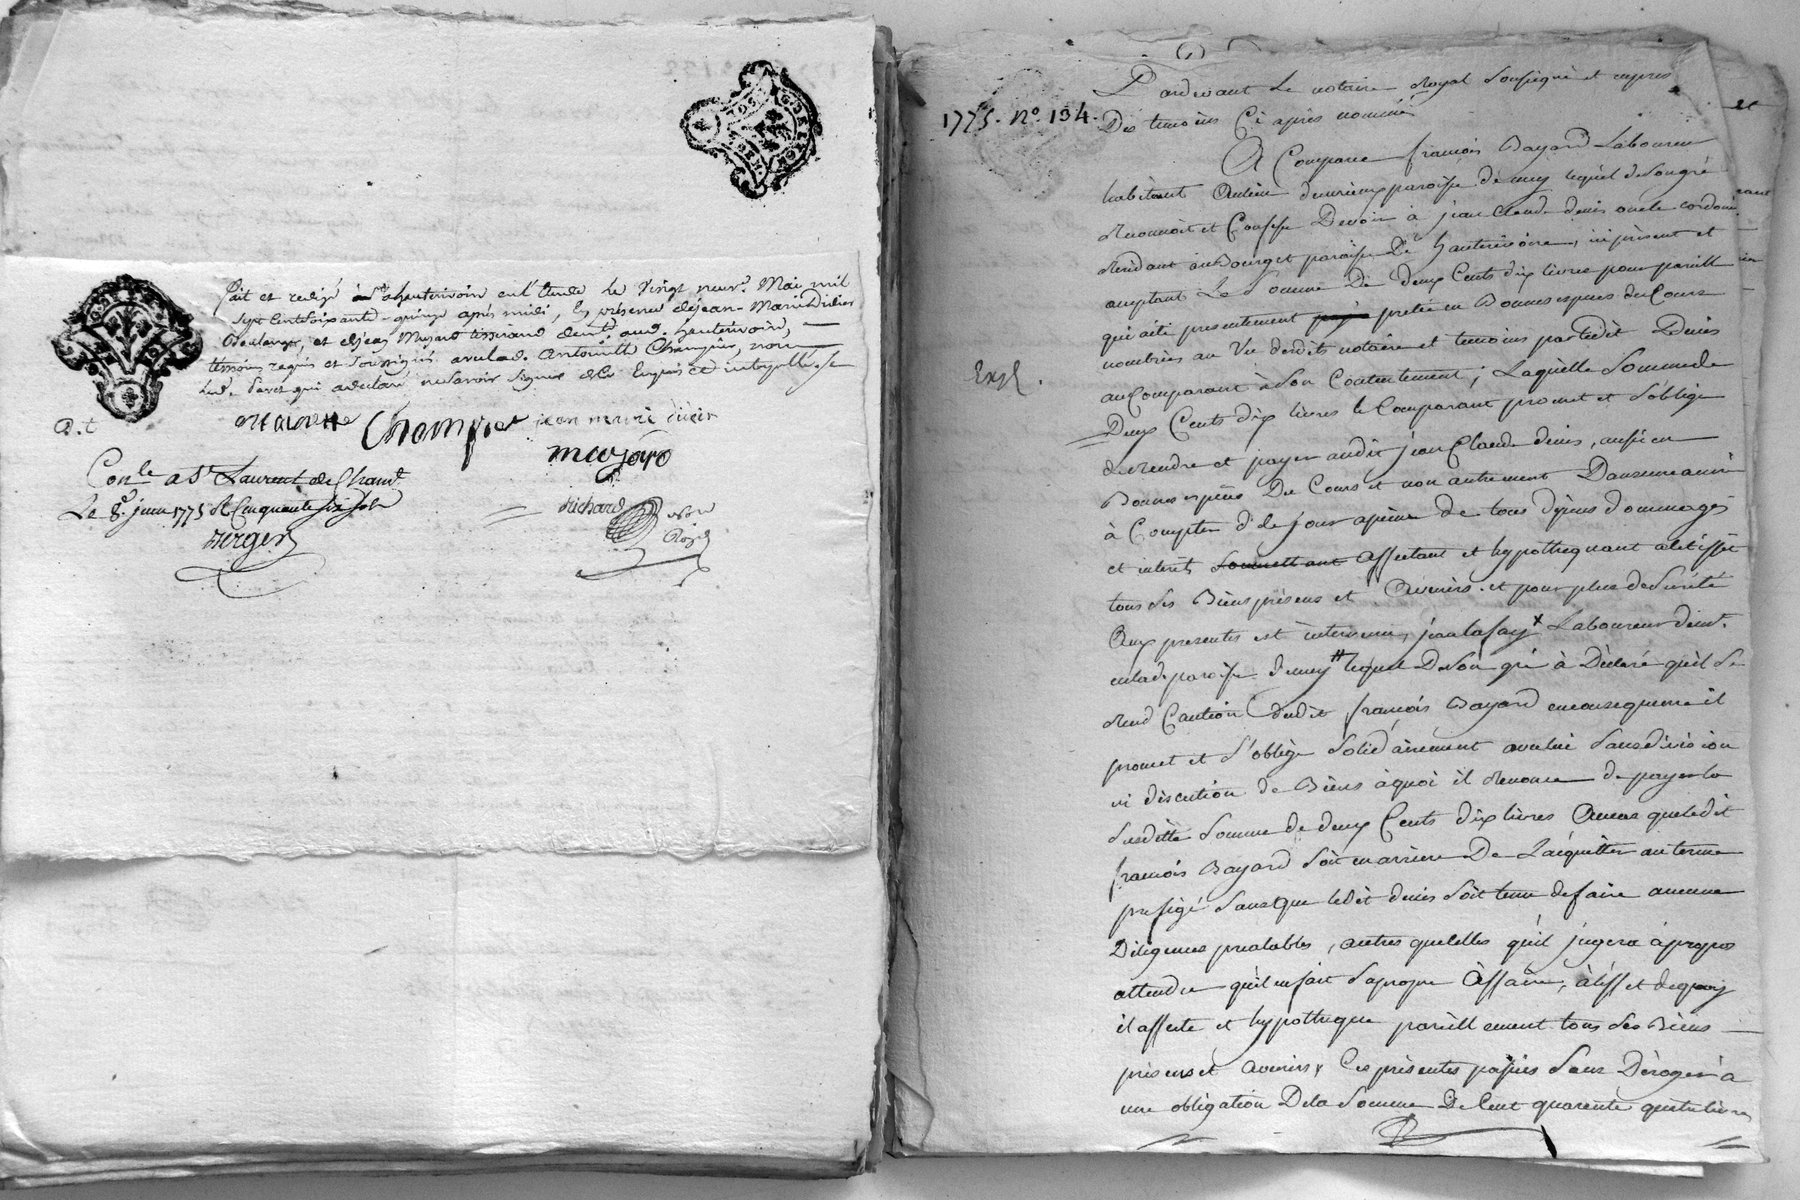 fait et redigé à hauterivoire en l'Etude le Vingt neuf. Mai mil
sept cent soixante-quinze après midi, En présence de jean-Marie Didier
Boulanger, et de jean Mujard tisserand demt. aud. hauterivoire,
temoins requis et soussignés avec lad. Antoinette Champier, non
led. qui a declaré ne savoir signer de ce Enquis et interpellé
antoinette Champier jean marie didier
mugard
D. t
Conlé a St Laurent de Chamt.
Le 8. juin 1775 R Cinquante six sols
Berger
Richard
Nore
Royal
1775. No. 134.
Pardevant Le notaire Royal soussigné et en présence
Des temoins Ci après nommés
A Comparu françois Bayard Laboureur
habitant paroisse de lequel de son gré
Reconnoit et Confesse Devoir à jean Claude denis cordoni
Residant au Bourg et paroisse De hauterivoire, ici présent et
acceptant La Somme De Deux Cents dix livres pour pareille
qui a été presentement pretée en Bonnes especes du Cours
nombrées au Vu desdits notaire et temoins par ledit Denis
au Comparant à son Contentement; Laquelle Somme de
Expé.
Deux Cents dix livres le Comparant promet et s'oblige
de rendre et payer audit jean Claude denis, aussi en
Bonnes espèces De Cours et non autrement Dans une année
à Compter de ce jour a peine de tous depens dommages
et interets soumettant Affectant et hypothequant a cet effet
tous ses Biens présens et Avenirs. et pour plus de sureté
Aux presentes est intervenu, jean Laboureur demt.
en lade. paroisse lequel De son gré à Declaré qu'il se
Rend Caution dudit françois Bayard en consequence il
promet et s'oblige Solidairement avec lui Sans division
ni discution de Biens à quoi il renonce de payer la
susditte Somme de deux Cents dix livres Au cas que ledit
françois Bayard Soit en arriere De L'acquitter au terme
prefigé Sans que ledit denis Soit tenu de faire aucune
Diligences prealables, autres que celles qu'il jugera à propos
attendu qu'il en fait sa propre Affaire, à l'effet de quoy
il affecte et hypotheque pareillement tous ses Biens
présens et avenirs, Ces présentes passées Sans Déroger à
une obligation De la Somme De Cent quarente quatre livres